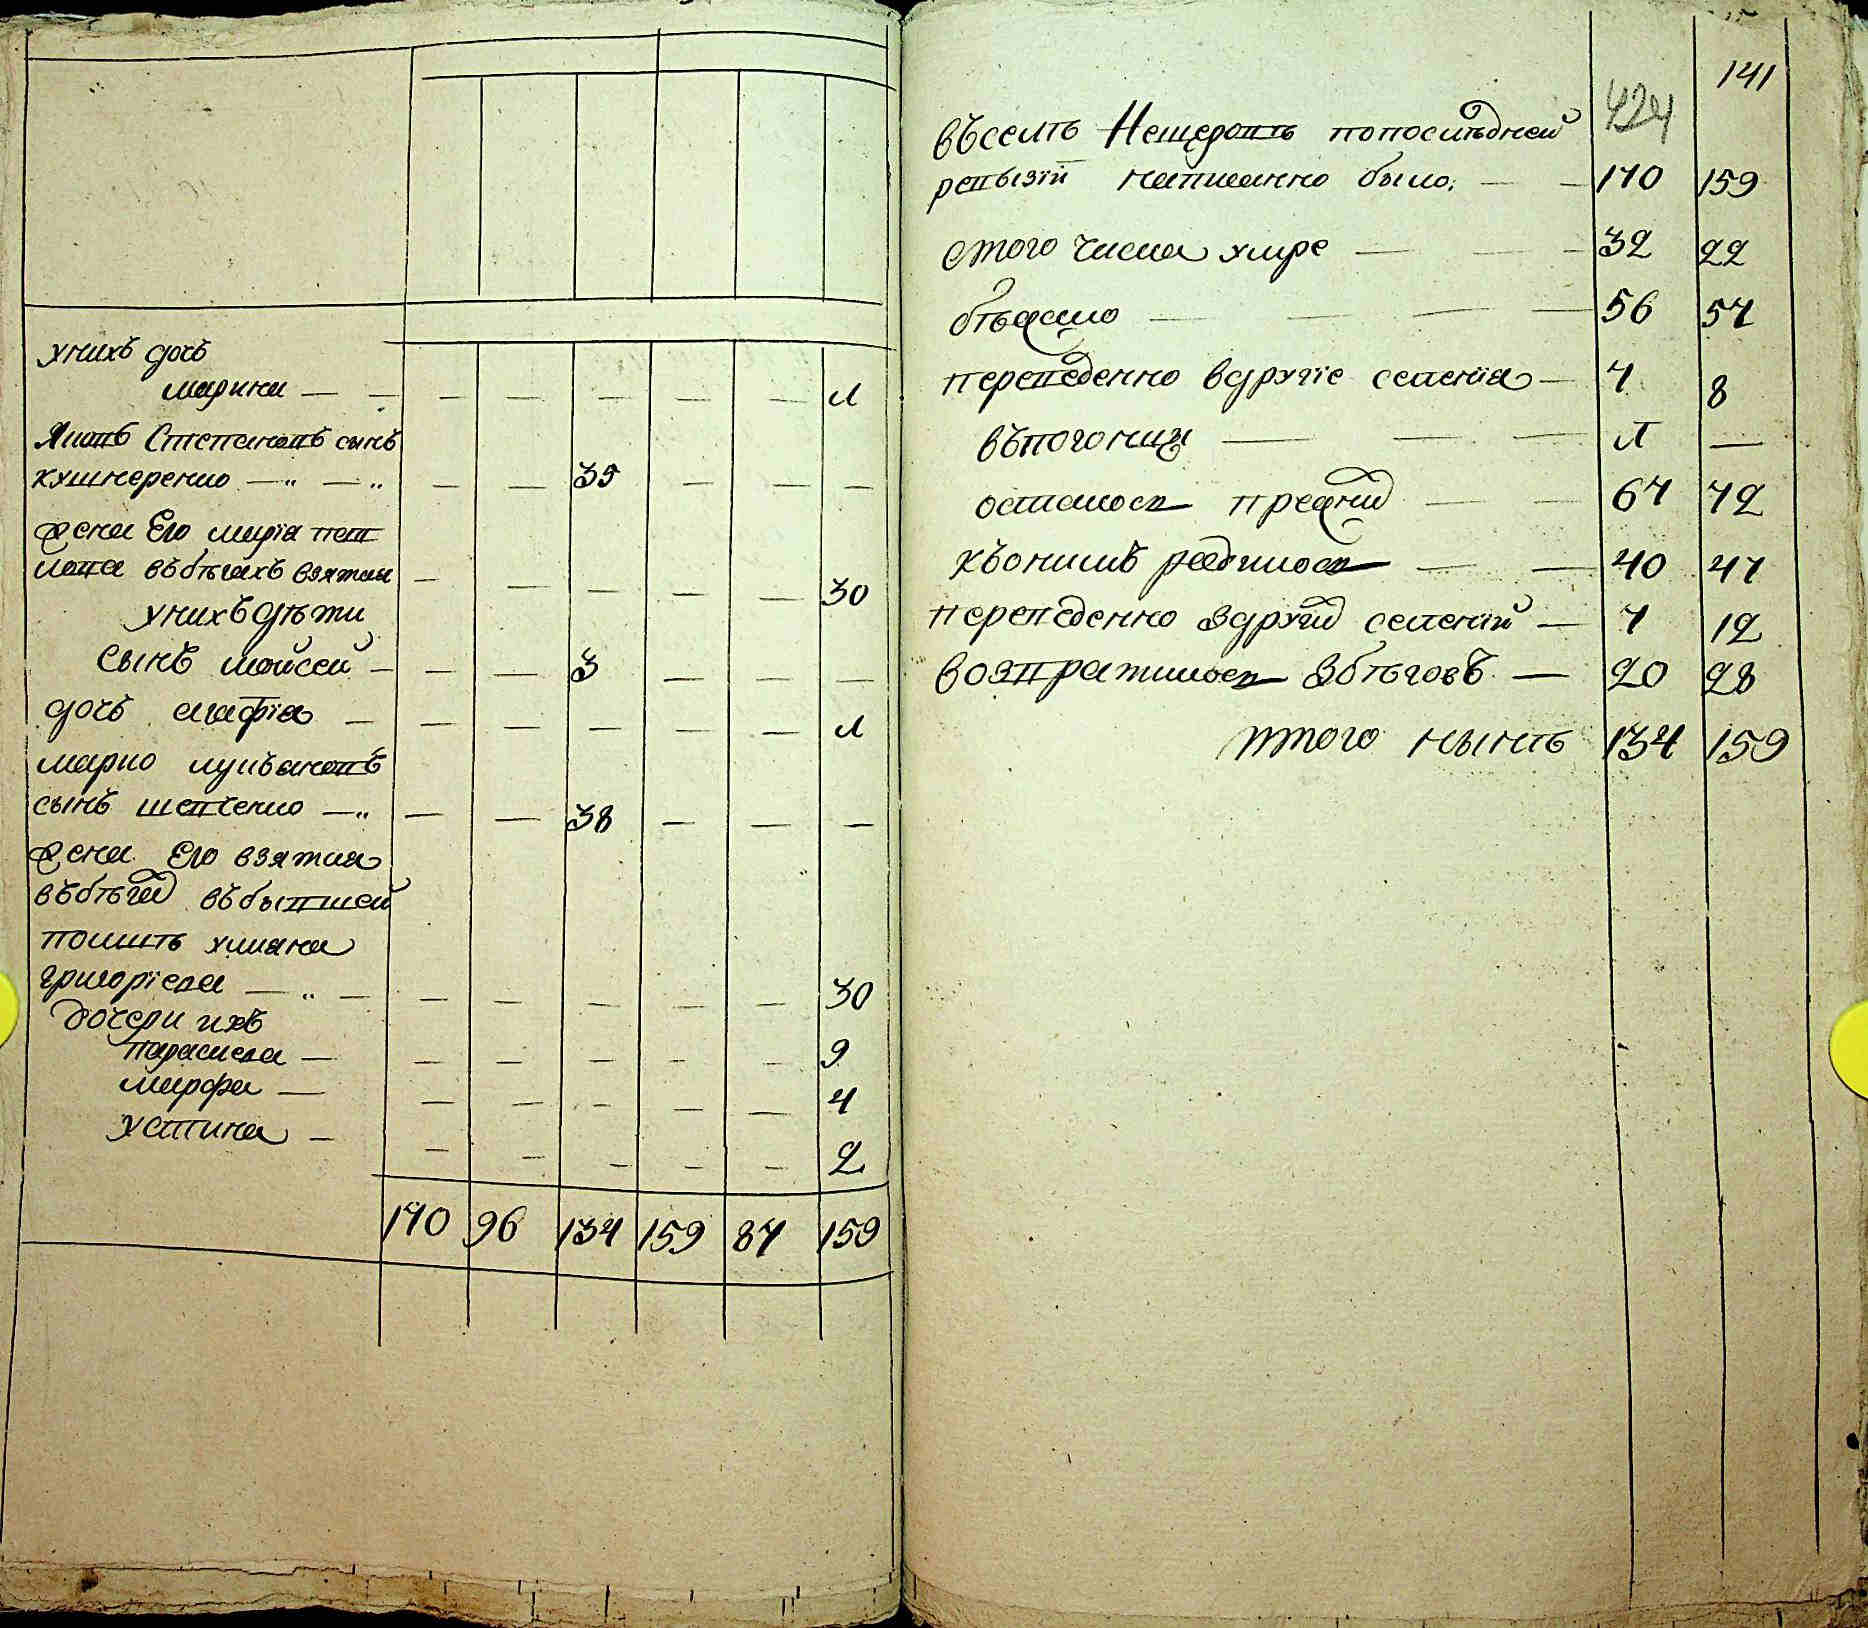 унихъ дочь
марина — — — — — — — 1
Яковъ Степановъ сынъ
кушнеренко — — — — 35 — — —
жена Его марїа пав
лова въбѣгахъ взятая — — — — — 30
унихъ дѣти
сынъ моисей — — — 3 — — —
дочь агафїа — — — — — — 1
марко лукъяновъ
сынъ шевченко — — — 38 — — —
жена Его взятая
въбѣгах въбывшей
полшѣ улияна
григорїева — — — — — — — 30
дочери ихъ
параскева — — — — — — 9
марфа — — — — — — 4
устина — — — — — — 2
170 96 134 159 87 159
141
424
въселѣ Нещеровѣ попослѣдней
ревызїи написанно было — — 170 159
стого числа умре — — — 32 22
бѣжало — — — — 56 57
переведенно вдругїе селенїа — 7 8
въпогонци — — — 1 —
осталось преждних — — 67 72
къонимъ родилось — — 40 47
переведенно здругих селенїй — 7 12
возвратилось збѣговъ — 20 28
итого нынѣ 134 159